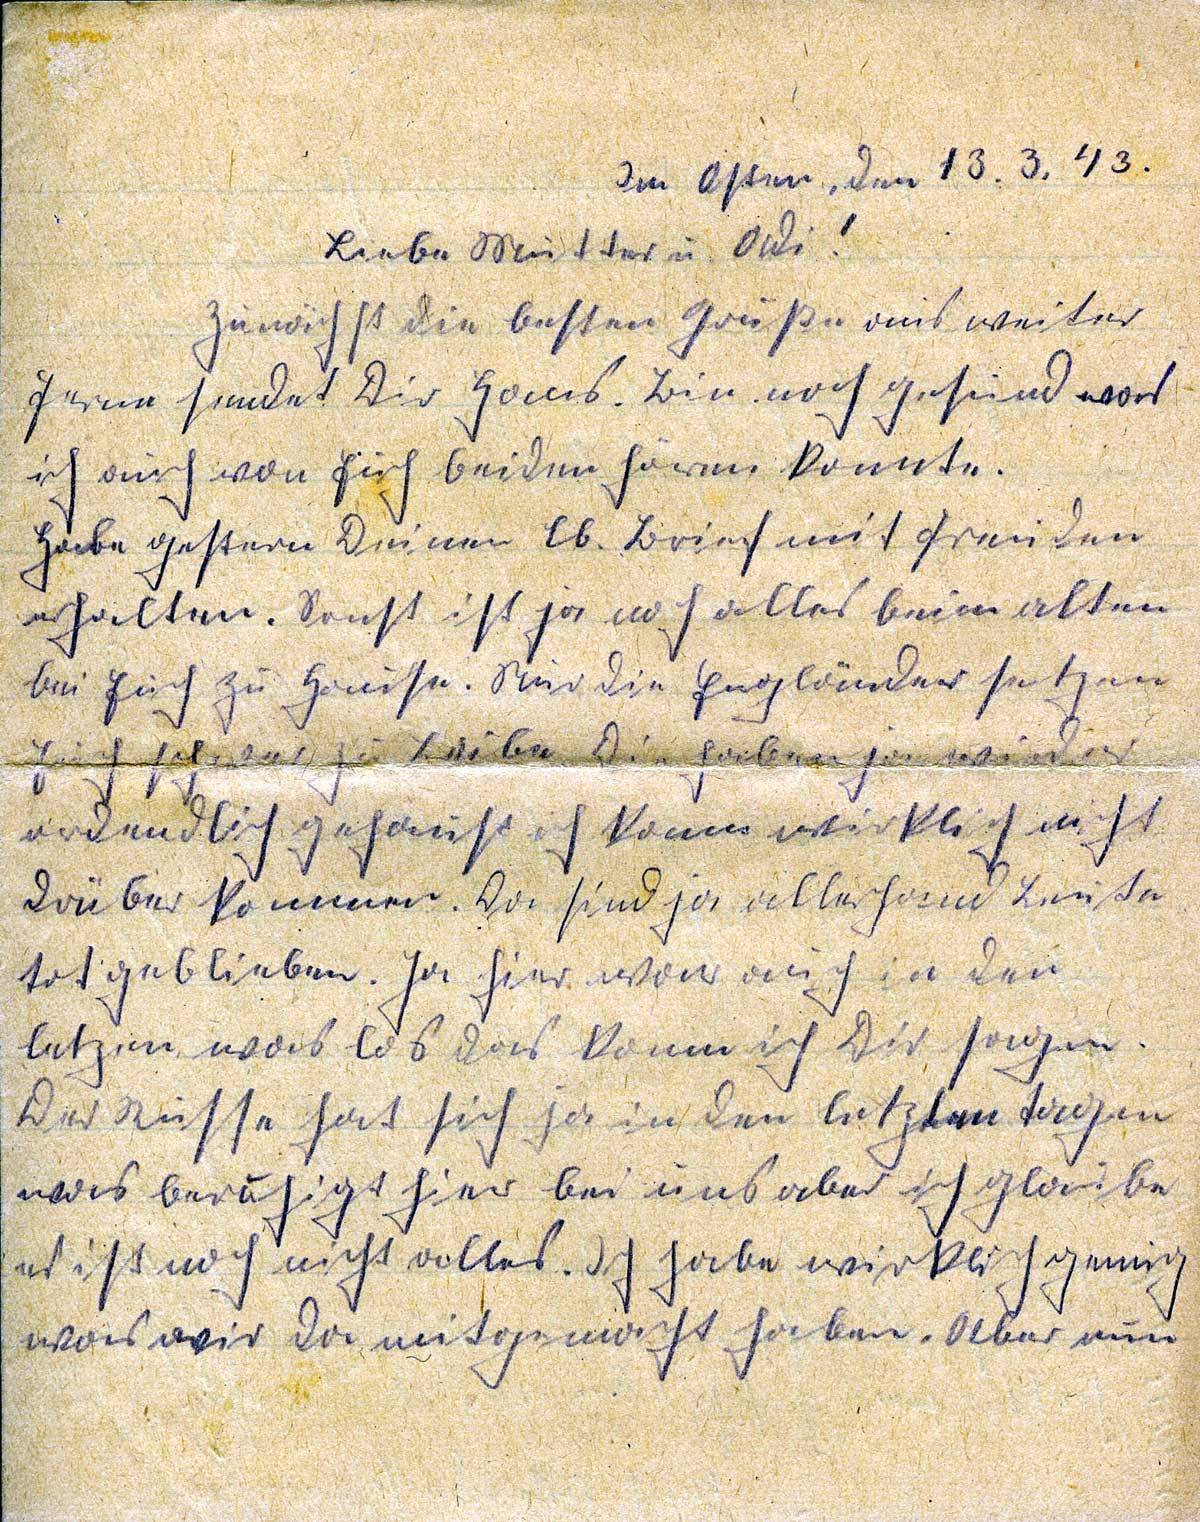 Im Osten, den 13. 3. 43.
Liebe Mutter u. Odi!
Zunächst die besten Grüße aus weiter
Ferne sendet Dir Hans. Bin noch gesund was
ich auch von Euch beiden hören konnte.
Habe gestern Deinen lb. Brief mit Freuden
erhalten. Sonst ist ja noch alles beim alten
bei Euch zu Hause. Nur die Engländer setzen
Euch schwer zu Leibe. Die haben ja wieder
ordendlich gehaust ich kann wirklich nicht
drüber kommen. Da sind ja allerhand Leute
totgeblieben. Ja hier war auch in den
letzen was los das kann ich Dir sagen.
Der Russe hat sich ja in den letzten tagen
was beruhigt hier bei uns aber ich glaube
es ist noch nicht alles. Ich habe wirklich genug
was wir da mitgemacht haben. Aber nun